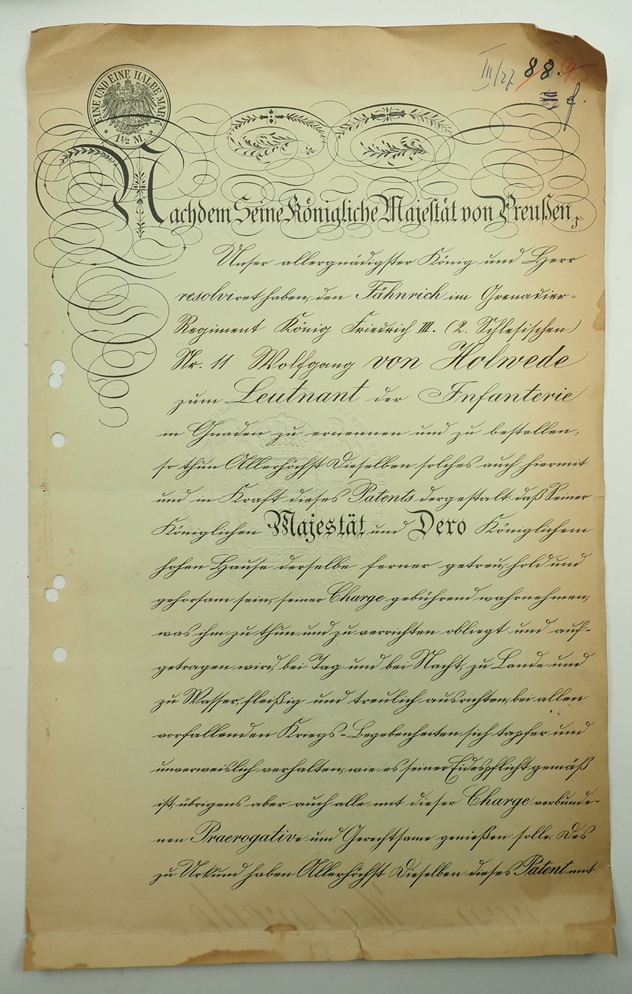 EINE UND EINE HALBE MARK
1½ M.
III/27 88.
Nachdem Seine Königliche Majestät von Preußen,
Unser allergnädigster König und Herr
resolviret haben, den Fähnrich im Grenadier-
Regiment König Friedrich III. (2. Schlesischen)
Nr. 11 Wolfgang von Holwede
zum Leutnant der Infanterie
in Gnaden zu ernennen und zu bestellen,
so thun Allerhöchst Dieselben solches auch hiermit
und in Kraft dieses Patents dergestalt daß Seiner
Königlichen Majestät und Dero Königlichem
hohen Hause derselbe ferner getreu, hold und
gehorsam sein, seiner Charge gebührend wahrnehmen,
was ihm zu thun und zu verrichten obliegt und auf-
getragen wird, bei Tag und bei Nacht, zu Lande und
zu Wasser, fleißig und treulich ausrichten, bei allen
vorfallenden Kriegs-Begebenheiten sich tapfer und
unverweislich verhalten, wie es seiner Eidespflicht gemäß
ist, übrigens aber auch alle mit dieser Charge verbunde-
nen Praerogative und Gerechtsame genießen solle. Des
zu Urkund haben Allerhöchst Dieselben dieses Patent mit